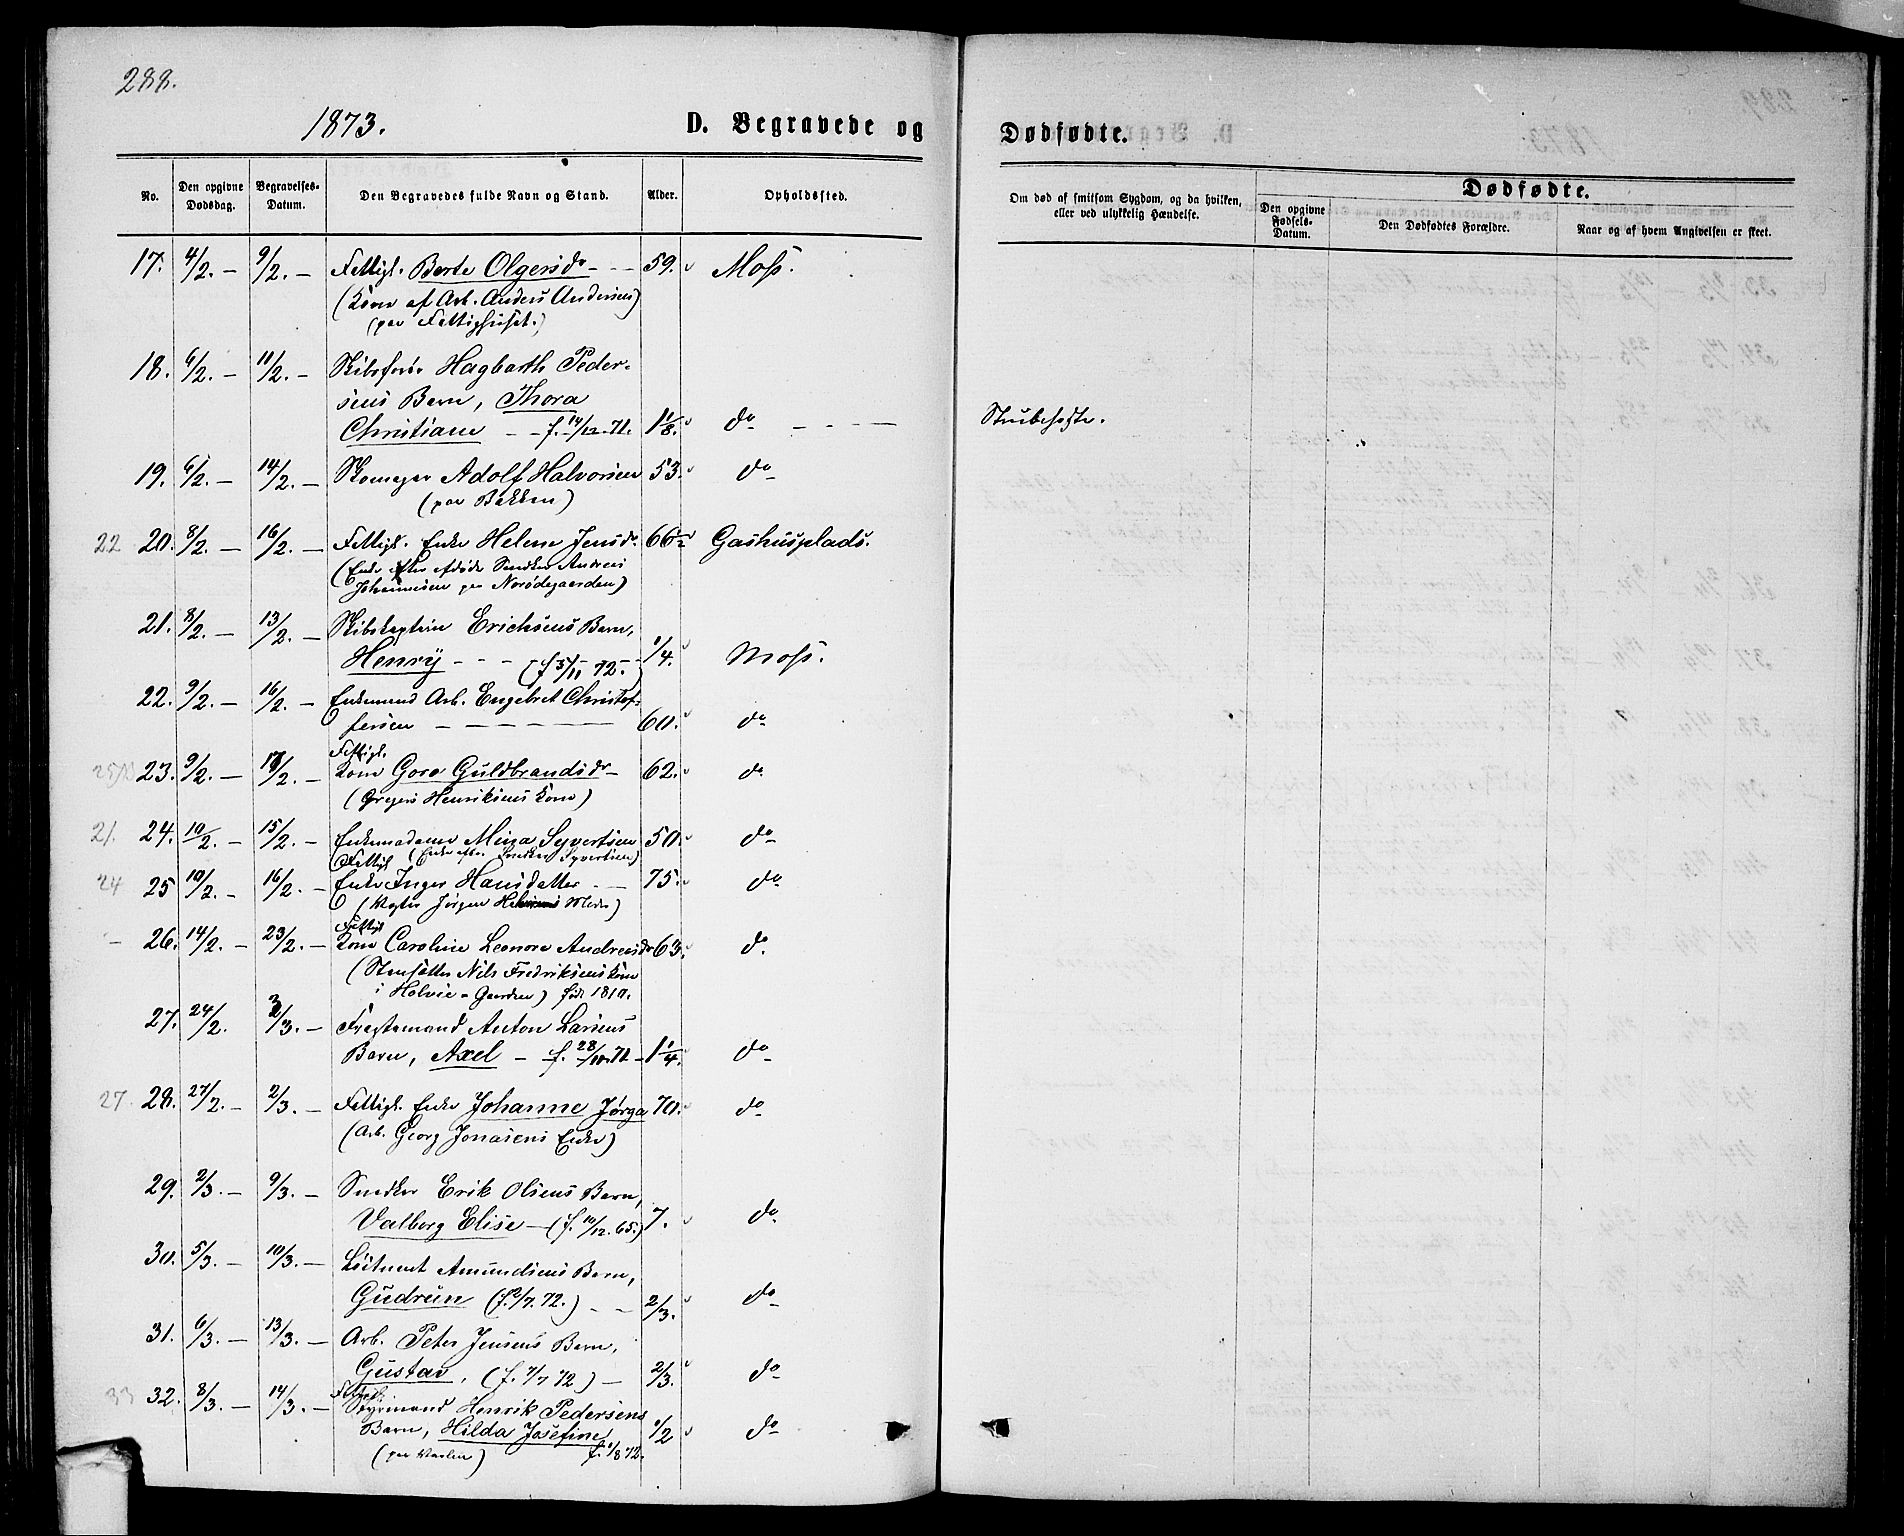 288.
1873. D. Begravede og Dødfødte.
No. Den opgivne Dødsdag. Begravelses-Datum. Den Begravedes fulde Navn og Stand. Alder. Opholdssted. Om død af smitsom Sygdom, og da hvilken, eller ved ulykkelig Hændelse. Dødfødte.
Den opgivne Fødsels-Datum. Den Dødfødtes Forældre. Naar og af hvem Angivelsen er skeet.
17. 4/2. – 9/2. – Fattigl. Berte Olgersdr – – 59. Moss.
(Kone af Arb. Anders Andersen)
(paa Fattighuset.)
18. 6/2. – 11/2. – Skibsfører Hagbarth Peder-
sens Barn, Thora
Christiane – – f. 14/12 71. 1 1/8. do – – – – Strubehoste.
19. 6/2. – 14/2. – Skomager Adolf Halvorsen 53. do
(paa Bakken)
22 20. 8/2. – 16/2. – Fattigl. Enke Helene Jensdr. 66 1/2 Gashusplads.
(Enke efter afdøde Snedker Andreas
Johannesen paa Norødegaarden)
21. 8/2. – 13/2. – Skibskaptein Ericksens Barn,
Henry – – – (f 5/11 72. –) 1/4. Moss.
22. 9/2. – 16/2. – Enkemand Arb. Engebret Christof-
fersen – – – – – – 60. do
23. 9/2. – 17/2. – Fattigl. Kone Goro Guldbrandsdr – 62. do
(Gregers Henriksens Kone)
21. 24. 10/2. – 15/2. – Enkemadame Minza Syvertsen 50. do
(Enke efter Snedker Syvertsen)
24 25 10/2. – 16/2. – Fattigl Enke Inger Hansdatter – – 75. do
(Vægter Jørgen Moder)
– 26. 14/2. – 23/2. – Fattigl Kone Caroline Leonora Andreasdr 63. do.
(Stenhatter Nils Fredriksens Kone
i Holvie-Gaarden) født 1810.
27. 24/2. 3/3. – Fragtemand Anton Larsens
Barn, Axel – f. 28/10 71 – 1 1/4. do
27. 28. 27/2. – 2/3. – Fattigl. Enke Johanne Jørga 70. do
(Arb. Georg Jonasens Enke)
29. 2/3. – 9/3. – Snedker Erik Olsens Barn,
Valborg Elise – (f. 10/12. 65.) 7. do
30. 5/3. – 10/3. – Løitnant Amundsens Barn,
Gudrun (f. 2/7. 72.) – – 2/3. do
31. 6/3. – 13/3. – Arb. Peter Jensens Barn,
Gustav, (f. 7/7 72) – 2/3. do
33 32. 8/3. – 14/3. – Fattigl. Styrmand Henrik Pedersens
Barn, Hilda Josefine 1/2 do
(paa Værlen) f. 1/8 72.